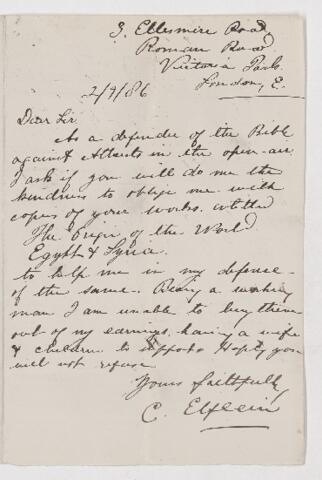 3, Ellesmere Road,
Roman Road
Victoria Park
London, E.
2/9/86
Dear Sir,
As a defender of the Bible
against Atheists in the open-air
I ask if you will do me the
kindness to oblige me with
copies of your works. entitled
The Origin of the World
Egypt & Syria.
to help me in my defence
of the same. Being a working
man I am unable to buy them
out of my earnings, having a wife
& children to support. Hoping you
will not refuse
Yours faithfully,
C. Elflein